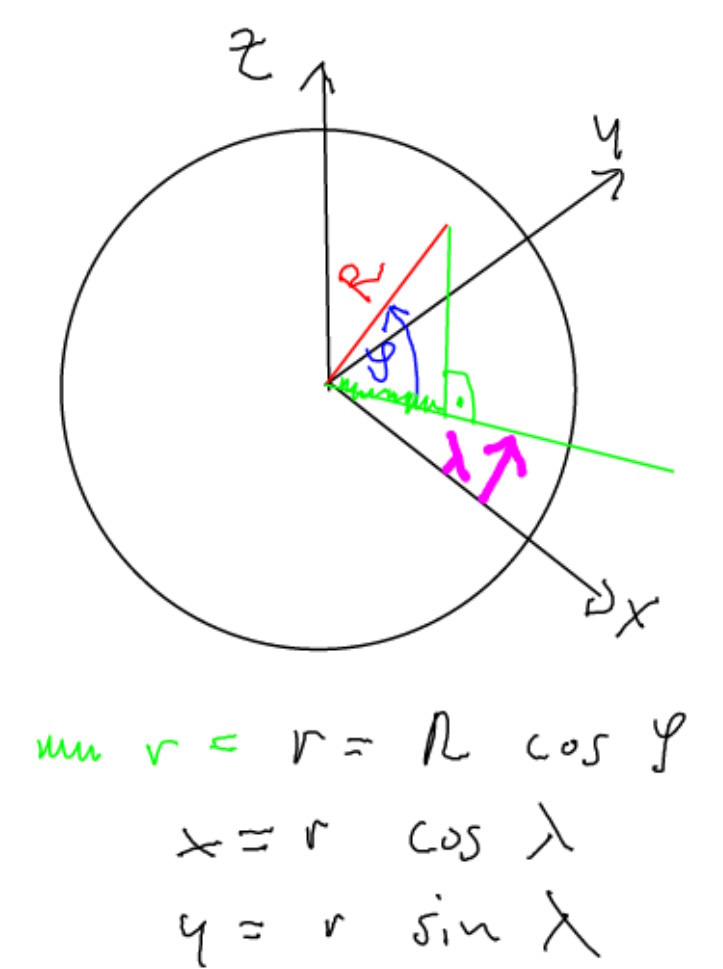 z
y
R
φ
λ
x
r = r = R cos φ
x = r cos λ
y = r sin λ